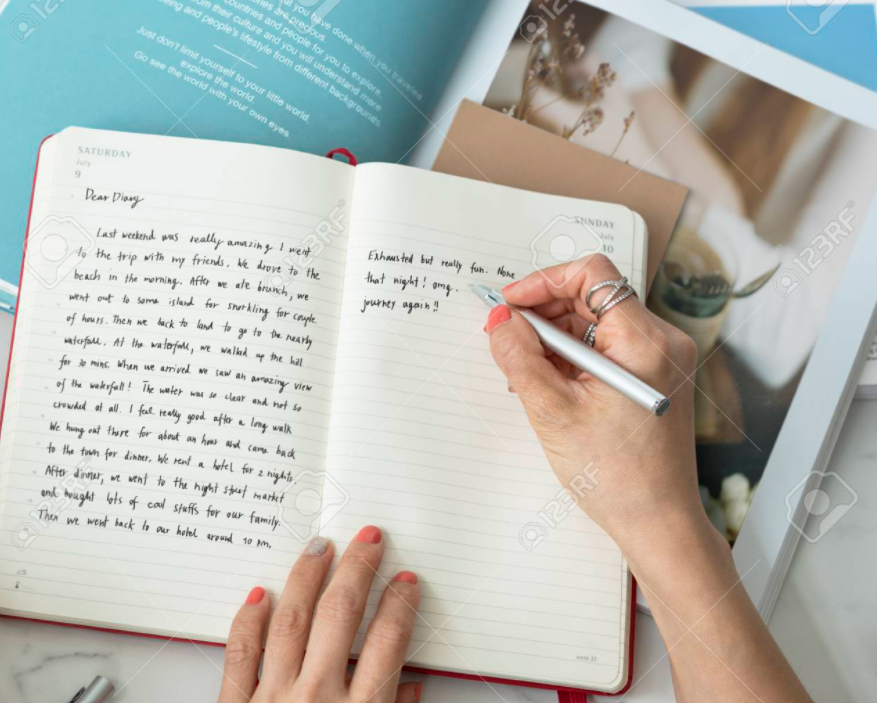 you have done when you traveled
countries are precious.
countries and people for you to explore.
from their culture and you will understand more
being and people's lifestyle from different backgrounds
Just don't limit yourself to your little world.
explore the world.
Go see the world with your own eyes.
SATURDAY
July
9
Dear Diary
Last weekend was really amazing. I went
to the trip with my friends. We drove to the
beach in the morning. After we ate brunch, we
went out to some island for snorkling for couple
of hours. Then we back to land to go to the nearby
waterfall. At the waterfall, we walked up the hill
for 30 mins. When we arrived we saw an amazing view
of the waterfall! The water was so clear and not so
crowded at all. I feel really good after a long walk
We hung out there for about an hour and came back
to the town for dinner. We rent a hotel for 2 nights.
After dinner, we went to the night street market
and bought lots of cool stuffs for our family.
Then we went back to our hotel around 10 PM.
SUNDAY
July
10
Exhausted but really fun. None
that night! omg.
journey again!!
week 27
123RF